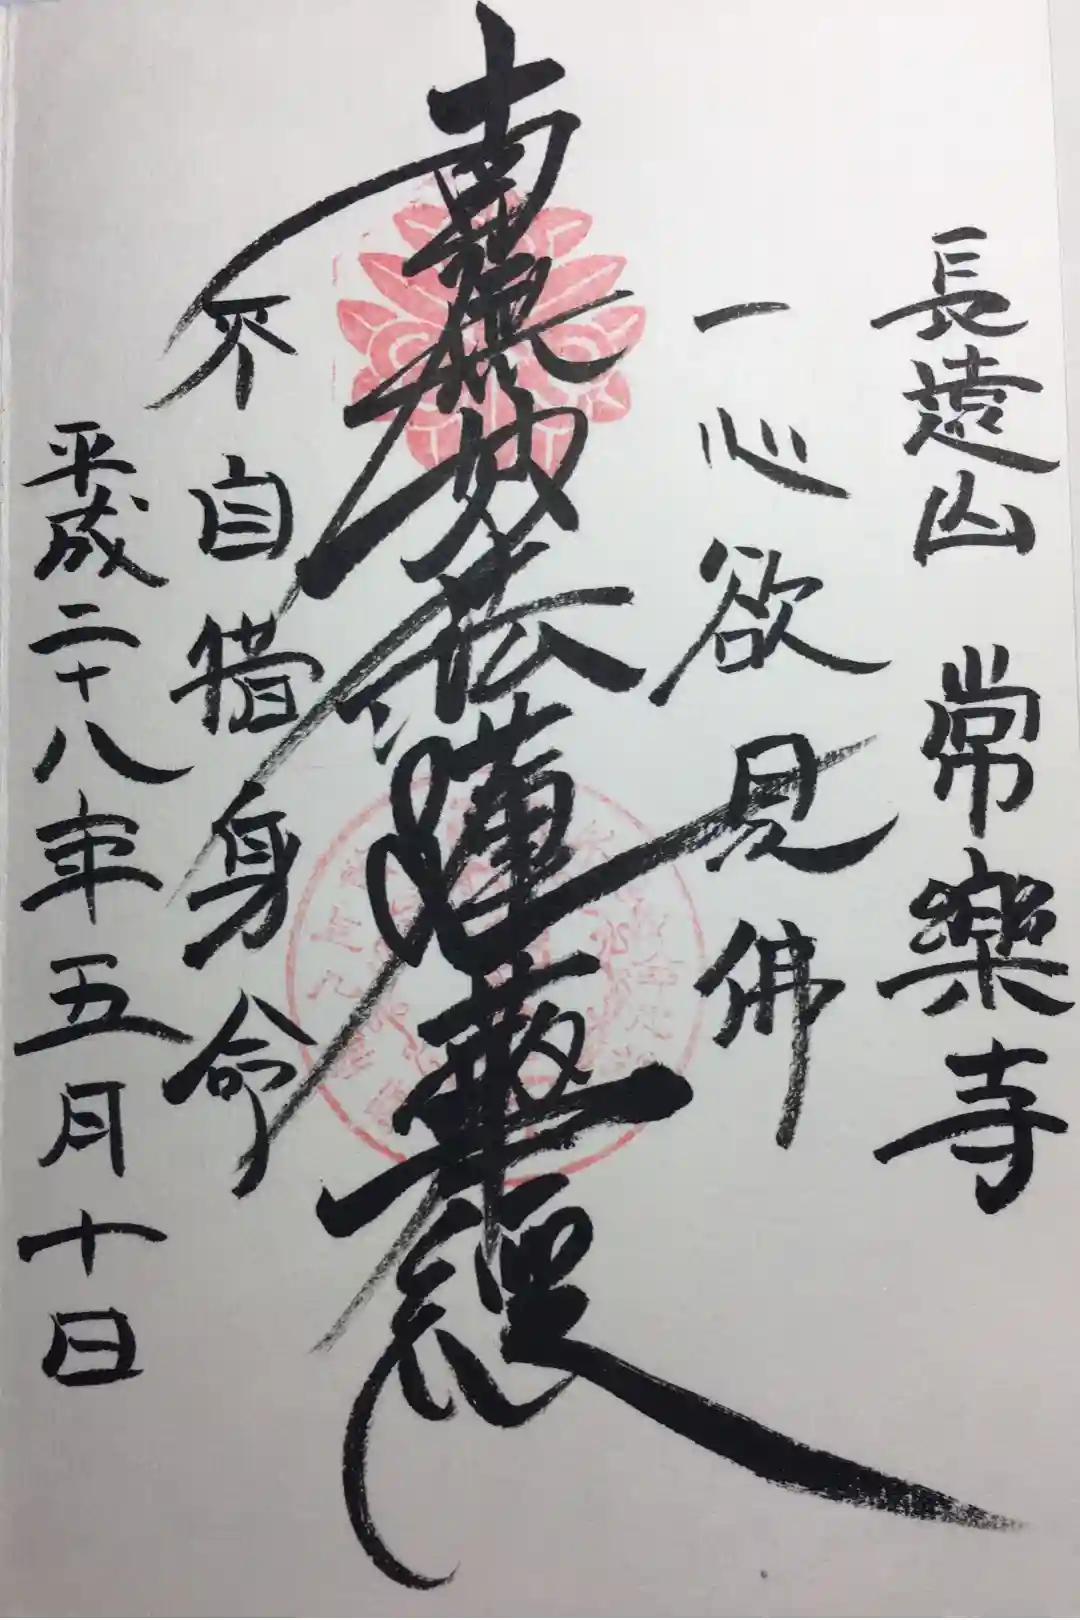 長遠山 常樂寺
一心欲見佛
南無妙法蓮華経
不自惜身命
平成二十八年五月十日